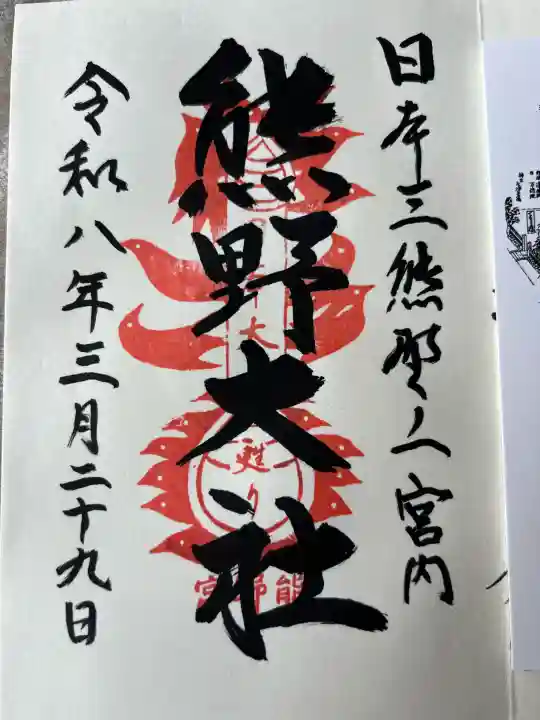 日本三熊野ノ一宮内
熊野大社
令和八年三月二十九日
大
甦り
熊野宮